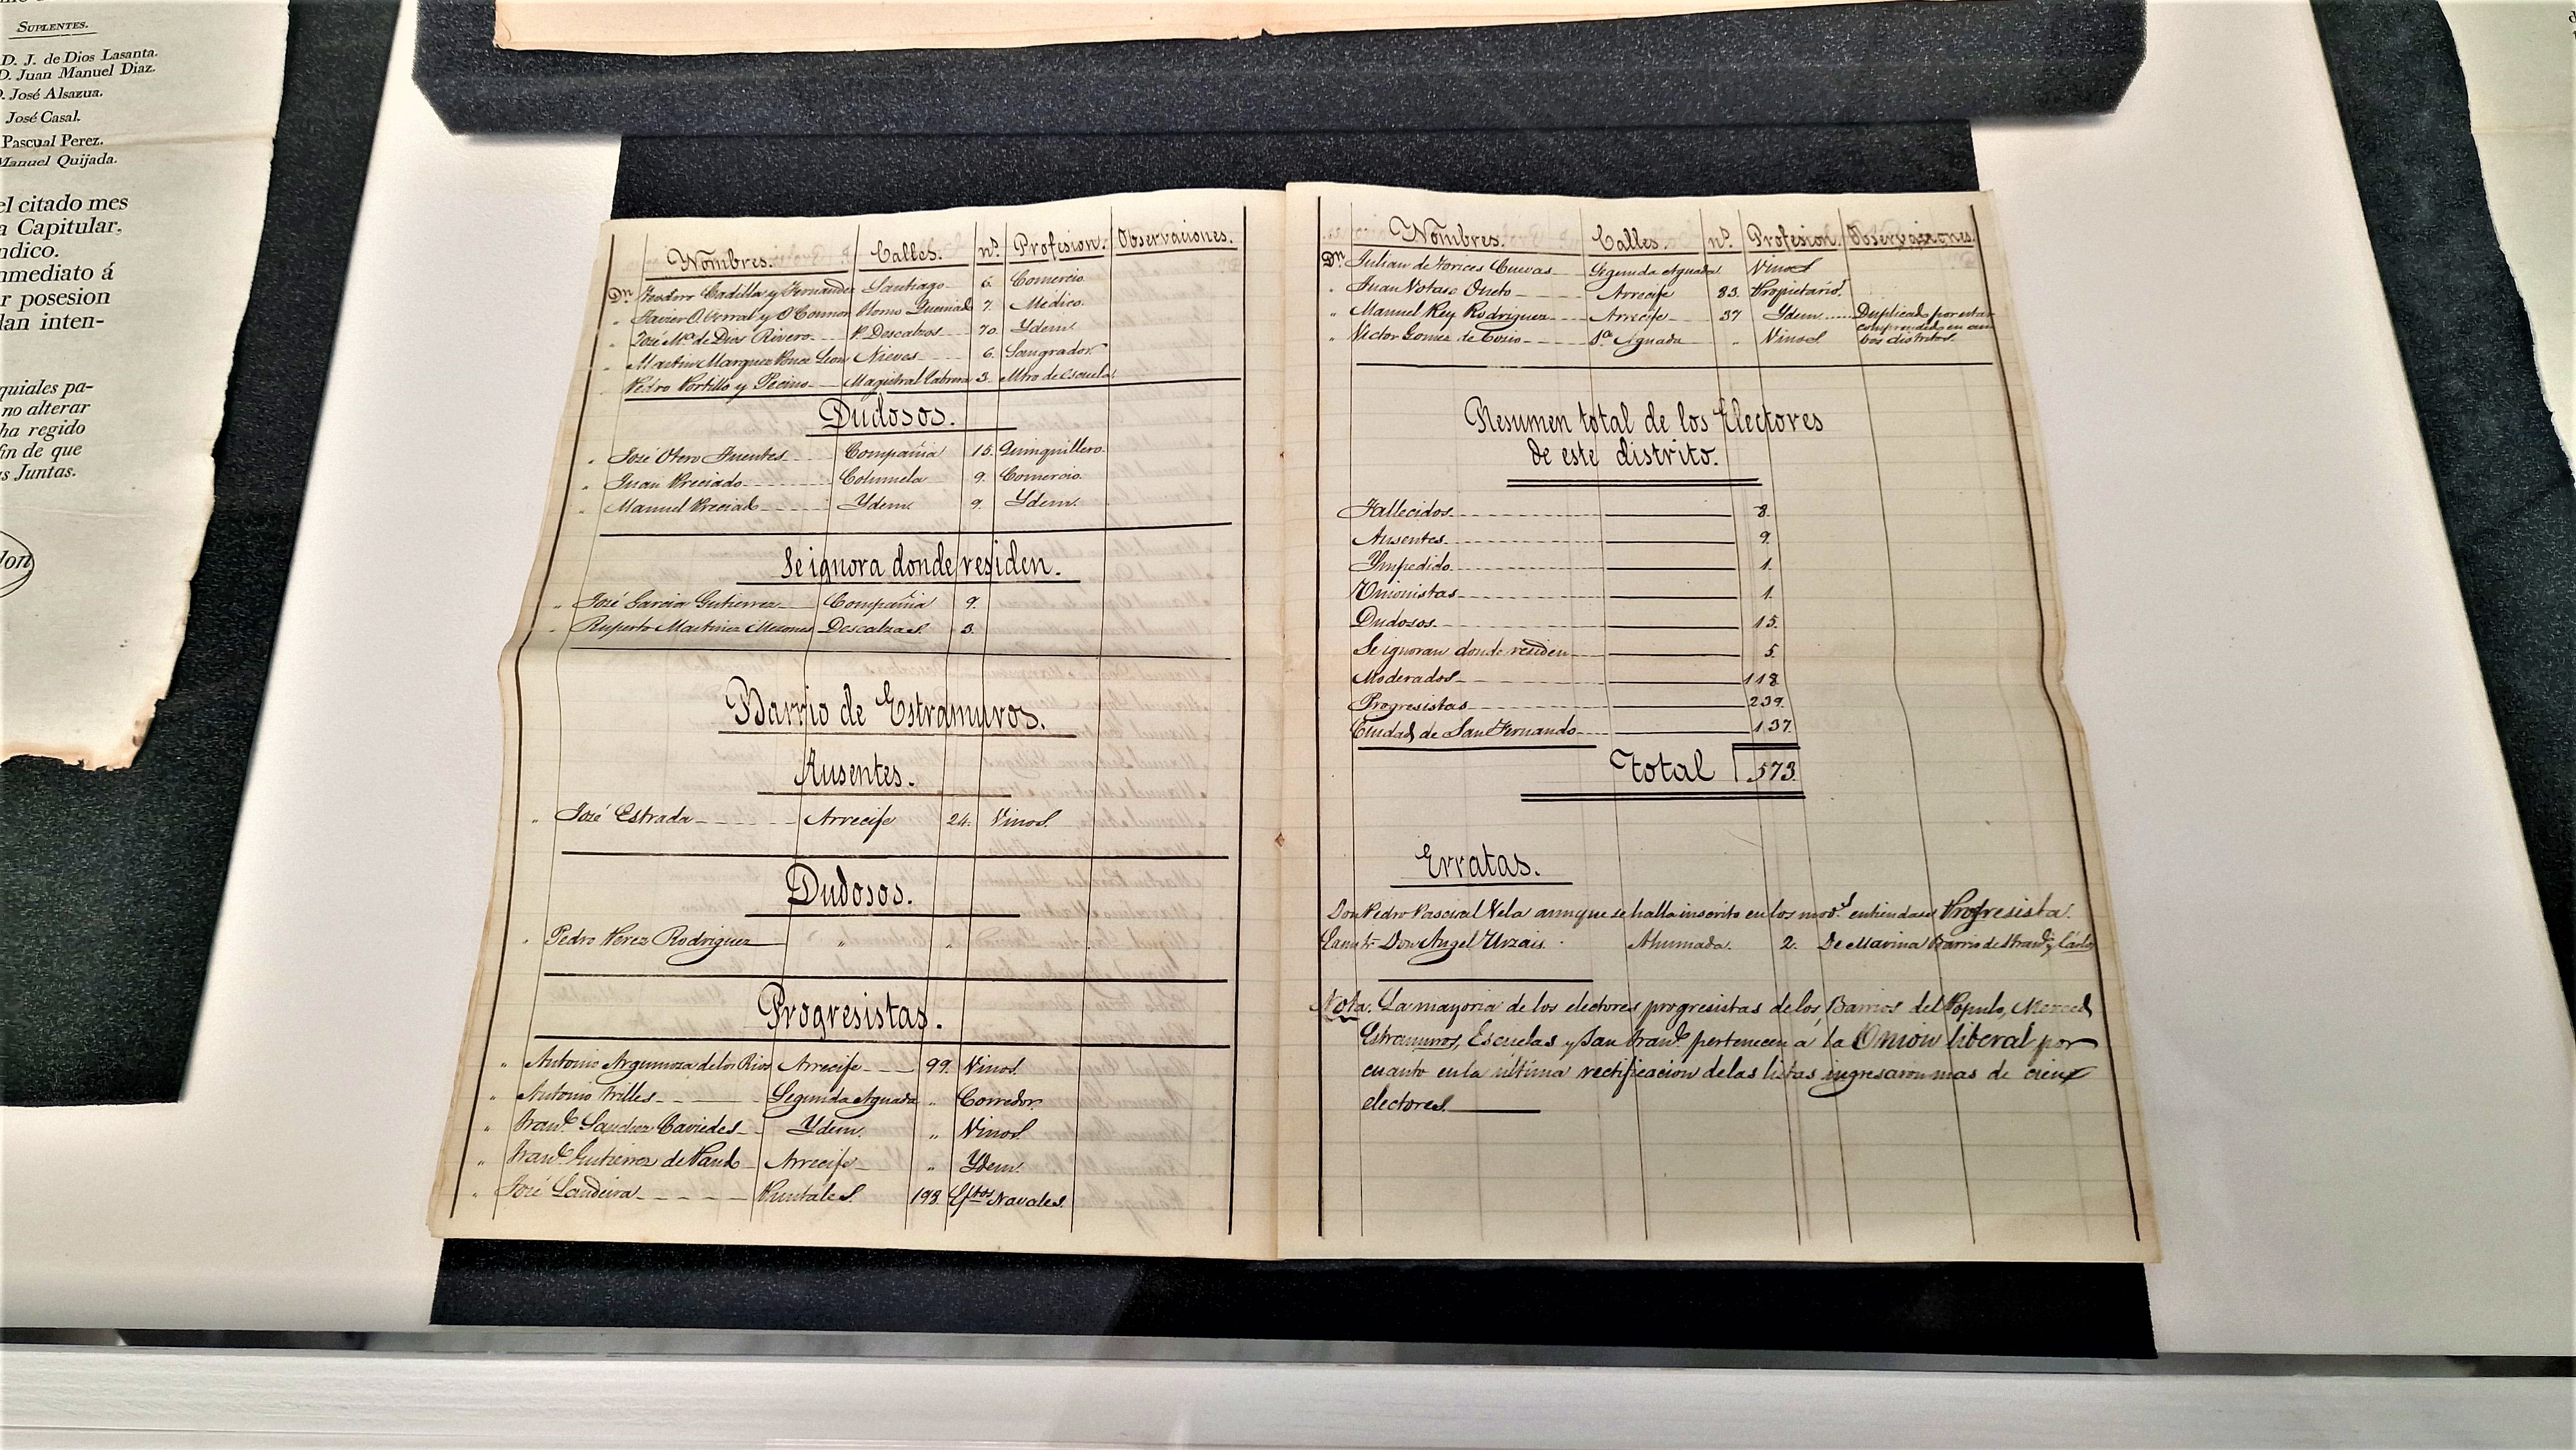 SUPLENTES.
D. J. de Dios Lasanta.
D. Juan Manuel Diaz.
D. José Alsazua.
José Casal.
Pascual Perez.
Manuel Quijada.
el citado mes
a Capitular,
ndico.
nmediato á
r posesion
dan inten-
quiales pa-
no alterar
ha regido
fin de que
s Juntas.
Nombres. Calles. nº. Profesion. Observaciones.
Dn. Teodoro Cadilla y Fernandez Santiago 6. Comercio
" Javier y O'Connor 7. Médico.
" José Mª de Dios Rivero P. Descalzos 70. Ydem.
" Martin Marquez Ponce Leon Nieves 6. Sangrador.
Pedro Portillo y Pecino Magistral Cabrera 3. Mtro de escuela
Dudosos.
" José Otero Fuentes Compañia 15. Quinquillero.
" Juan Preciado Columela 9. Comercio.
" Manuel Preciado Ydem. 9. Ydem.
Se ignora donde residen.
" José Garcia Gutierrez Compañia 9.
" Ruperto Martinez Descalzas. 3.
Barrio de Estramuros.
Ausentes.
" José Estrada Arrecife 24. Vinos.
Dudosos.
" Pedro Perez Rodriguez " "
Progresistas.
" Antonio Argumosa de los Rios Arrecife 99. Vinos.
" Antonio Trilles Segunda Aguada " Corredor.
" Franco. Sanchez Caviedes Ydem. " Vinos.
" Franco. Gutierrez de Arrecife " Ydem.
" José Landeira Puntales. 198. Gtos Navales.
Nombres. Calles. nº. Profesion. Observaciones.
Dn. Julian de Torices Cuevas Segunda Aguada Vinos
" Juan Oneto Arrecife 83. Propietario.
" Manuel Rey Rodriguez Arrecife 37 Ydem. Duplicado por estar
comprendido en am
" Victor Gomez de Cosio Aguada " Vinos bos distritos.
Resumen total de los Electores
de este distrito.
Fallecidos 8.
Ausentes 9.
Ympedido 1.
Unionistas 1.
Dudosos 15.
Se ignoran donde residen 5.
Moderados 118.
Progresistas 239.
Ciudad de San Fernando 137.
Total 573.
Erratas.
Don Pedro Pascual Vela aunque se halla inscrito en los mods. entiendase Progresista.
Don Angel Urzais. Ahumada. 2. De Marina Barrio de
Nota. La mayoria de los electores progresistas de los Barrios del Populo, Merced
Estramuros, Escuelas y San Franco. pertenecen á la Union liberal por
cuanto en la última rectificacion de las listas ingresaron mas de cien
electores.